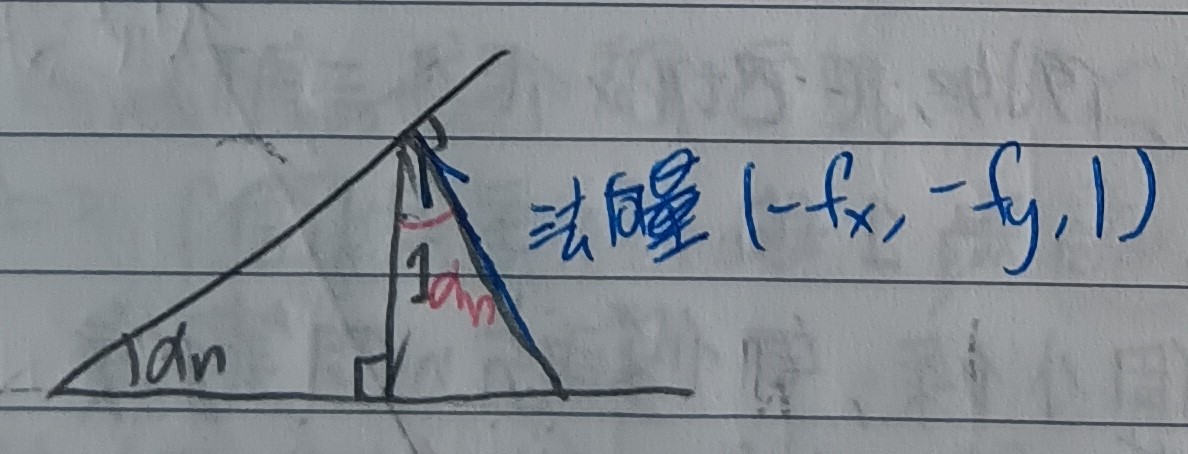 法向量 (-fx, -fy, 1)
1 αn
αn